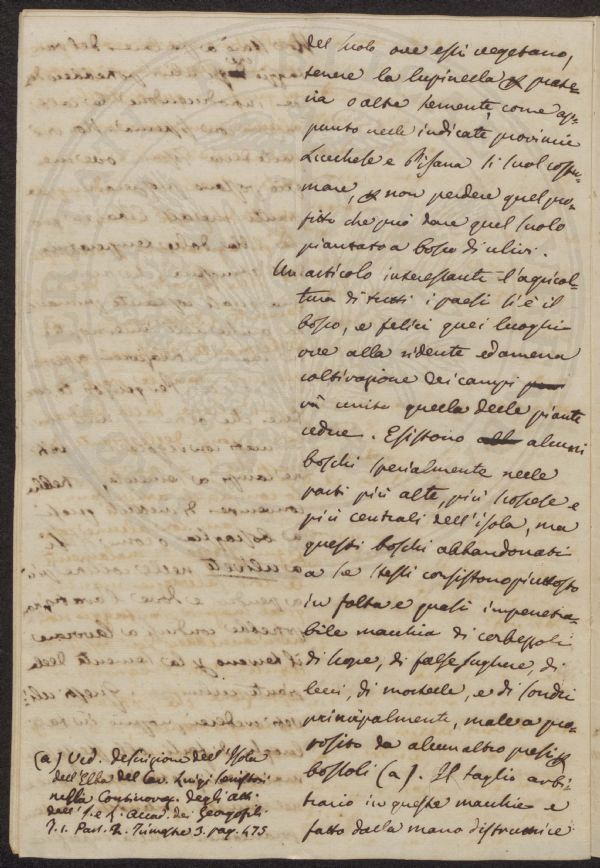 del suolo ove essi vegetano,
tenere la lupinella o prate-
ria o altra semente, come ap-
punto nelle indicate provincie
Lucchese e Pisana si suol costu-
mare, e non perdere quel pro-
fitto che può dare quel suolo
piantato a bosco di ulivi.
Un articolo interessante l'agricol-
tura di tutti i paesi si è il
bosco, e felici quei luoghi
ove alla ridente ed amena
coltivazione dei campi
và unita quella delle piante
cedue. Esistono alcuni
boschi specialmente nelle
parti più alte, più scoscese e
più centrali dell'isola, ma
questi boschi abbandonati
a se stessi consistono piuttosto
in folta e quasi impenetra-
bile macchia di corbezzoli
di scope, di false sughere, di
lecci, di mortelle, e di sondri
principalmente, male a pro-
posito da alcun altro presi
bossoli (a). Il taglio arbi-
trario in queste macchie e
fatto dalla mano distruttrice
(a) Ved. descrizione dell'Isola
dell'Elba del Cav. Luigi
nella Continovaz. degli atti
dell'I. e R. Accad. dei Georgofili
T. 1. Part. 2. Trimestre 3. pag. 475